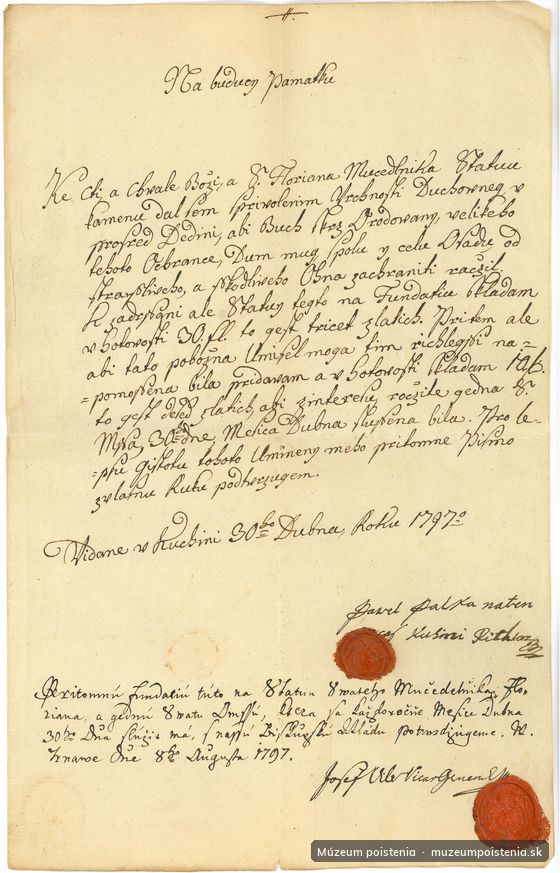 Na buducy Pamatku
Ke Cti, a Chwale Boži, a S. Floriana Mucedlnika Statuu
kamenu dal sem Priwolenim Wrchnosti Duchowneg, v
prosred Dedini, abi Buch skrz Orodowany, velikeho
tehoto Ochrance, Dum mug, spolu y celu Osadu od
strassliveho, a sskodliveho Ohna zachraniti račzil.
K zadrssáni ale Statuy tegto na Fundatiu skladam
v hotovosti 30 fl. to gest tricet zlatich. Pritem ale
abi tato pobožna Umisel moga tim richlegssi na=
=pomossena bila pridavam a v hotovosti skladam
to gest zlatich, abi z interesu, rocžite gedna S.
Mssa, 30 dne, Mesica Dubna sluzsena bila. Pro le=
=pssu Gistotu tohoto Umineny meho pritomne Pismo
zvlasnu Ruku podtwrzugem.
Vidane v Kuchini 30ho Dubna, Roku 1797o
Pawel Palka naten
čas Kušini Richtar
Pritomnú fundatiú túto na Statuu Swateho Mučedelnika Flo-
riana, a gednú Swatu Omssú, ktera sa každoročne Mesice Dubna
30ho Dna služit ma, s nassu Biskupskú wládu Potwrdzugeme. W.
Trnawe Dne 8ho Augusta 1797.
Josef Vicar General
Múzeum poistenia · muzeumpoistenia.sk